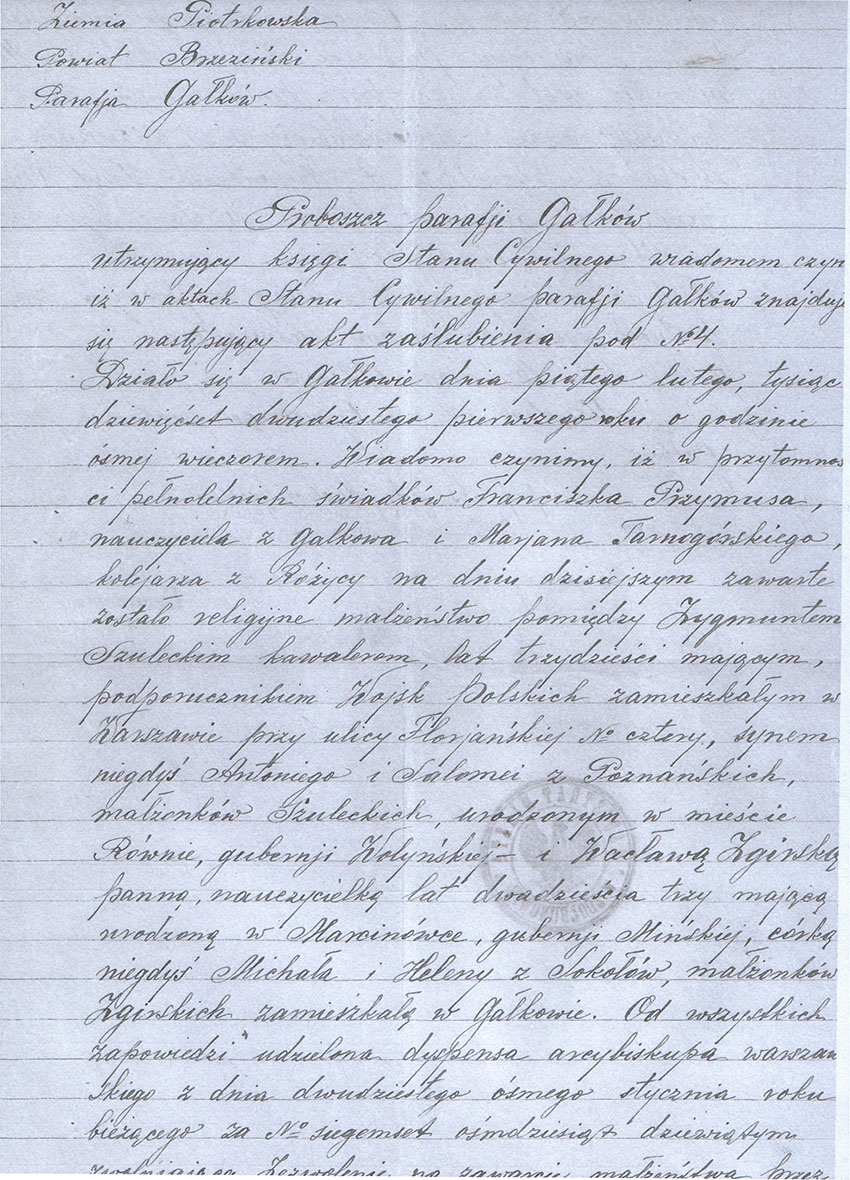 Ziemia Piotrkowska
Powiat Brzeziński
Parafja Gałków.
Proboszcz parafji Gałków
utrzymujący księgi Stanu Cywilnego wiadomem czyn
iż w aktach Stanu Cywilnego parafji Gałków znajduje
się następujący akt zaślubienia pod № 4.
Działo się w Gałkowie dnia piątego lutego, tysiąc
dziewięćset dwudziestego pierwszego roku o godzinie
ósmej wieczorem. Wiadomo czynimy, iż w przytomnoś
ci pełnoletnich świadków Franciszka Przymusa,
nauczyciela z Gałkowa i Marjana Tarnogórskiego,
kolejarza z Różycy na dniu dzisiejszym zawarte
zostało religijne małżeństwo pomiędzy Zygmuntem
Szuleckim kawalerem, lat trzydzieści mającym,
podporucznikiem Wojsk Polskich zamieszkałym w
Warszawie przy ulicy Florjańskiej № cztery, synem
niegdyś Antoniego i Salomei z Poznańskich,
małżonków Szuleckich, urodzonym w mieście
Równie, gubernji Wołyńskiej – i Wacławą Zgirską
panną, nauczycielką lat dwadzieścia trzy mającą
urodzoną w Marcinówce, gubernji Mińskiej, córką
niegdyś Michała i Heleny z Sokołów, małżonków
Zgirskich zamieszkałą w Gałkowie. Od wszystkich
zapowiedzi udzielona dyspensa arcybiskupa warszaw
skiego z dnia dwudziestego ósmego stycznia roku
bieżącego za № siegemset ośmdziesiąt dziewiątym
Zezwolenie na zawarcie małżeństwa przez